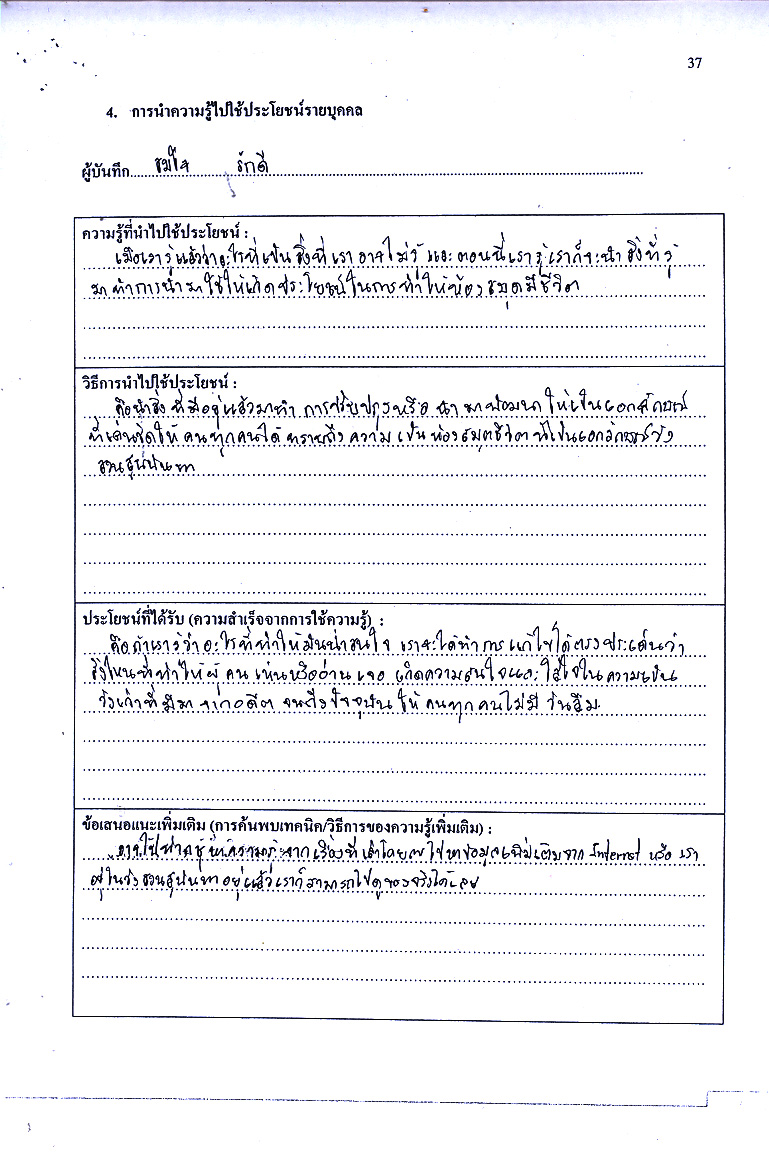 37
4. การนำความรู้ไปใช้ประโยชน์รายบุคคล
ผู้บันทึก ชมใจ รักดี
ความรู้ที่นำไปใช้ประโยชน์ :
เมื่อเรารู้แล้วว่าอะไรที่เป็นสิ่งที่เราอาจไม่รู้ และตอนนี้เรารู้เราก็จะนำสิ่งที่รู้
มาทำการนำมาใช้ให้เกิดประโยชน์ในการทำให้ห้องสมุดมีชีวิต
วิธีการนำไปใช้ประโยชน์ :
คือนำสิ่งที่มีอยู่แล้วมาทำการปรับปรุงหรือนำมาพัฒนาให้เป็นเอกลักษณ์
ที่เด่นชัดให้คนทุกคนได้ทราบถึงความเป็นห้องสมุดชีวิตที่เป็นเอกลักษณ์วัง
สวนสุนันทา
ประโยชน์ที่ได้รับ (ความสำเร็จจากการใช้ความรู้) :
คือถ้าเรารู้ว่าอะไรที่ทำให้มันน่าสนใจ เราจะได้ทำการแก้ไขได้ตรงประเด็นว่า
สิ่งไหนที่ทำให้ผู้คนเห็นหรืออ่านเจอ เกิดความสนใจและใส่ใจในความเป็น
วังเก่าที่มีมา อดีต จนถึงปัจจุบันให้คนทุกคนไม่มีวันลืม
ข้อเสนอแนะเพิ่มเติม (การค้นพบเทคนิค/วิธีการของความรู้เพิ่มเติม) :
จากเรื่องที่ ไปหาข้อมูลเพิ่มเติมจาก Internet หรือ เรา
อยู่ในวังสวนสุนันทาอยู่แล้วเราก็สามารถไปดูของจริงได้เลย